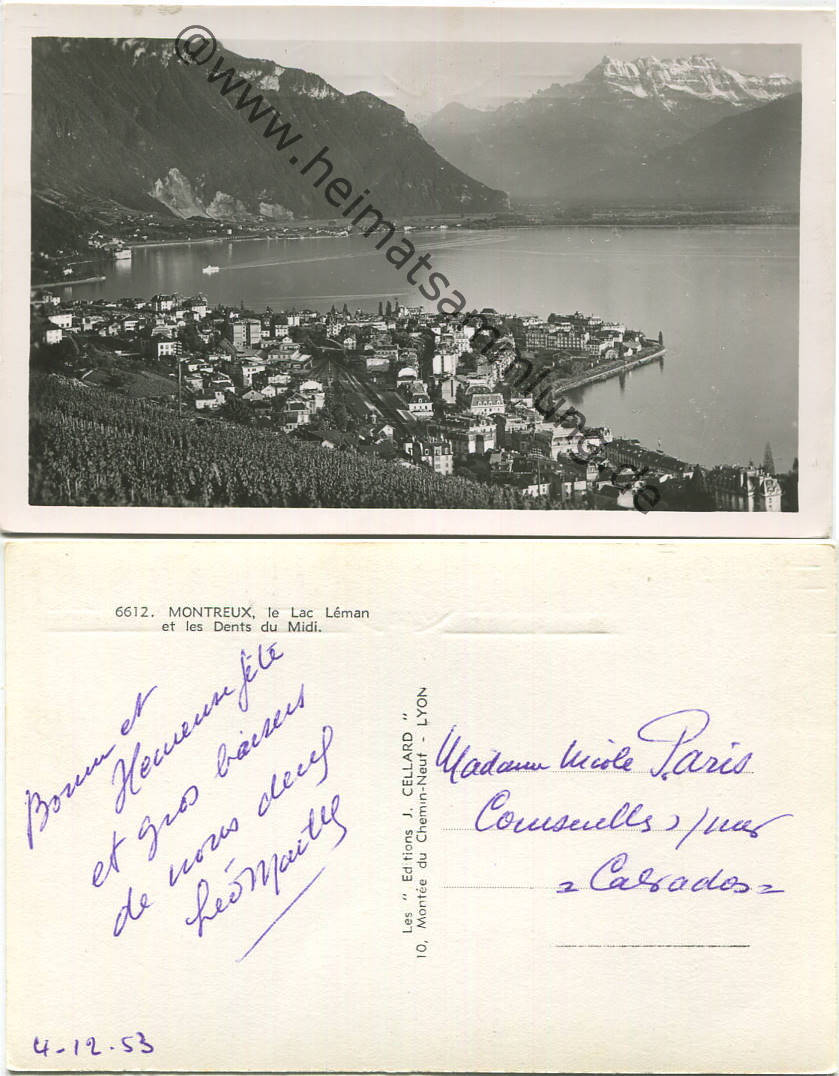 @www.heimatsammlung.de
6612. MONTREUX, le Lac Léman
et les Dents du Midi.
Bonne et
Heureuse fête
et gros baisers
de nous deux
Léo
Les " Editions J. CELLARD "
10, Montée du Chemin-Neuf - LYON
Madame Nicole Paris
Courseulles s/mer
= Calvados =
4-12-53